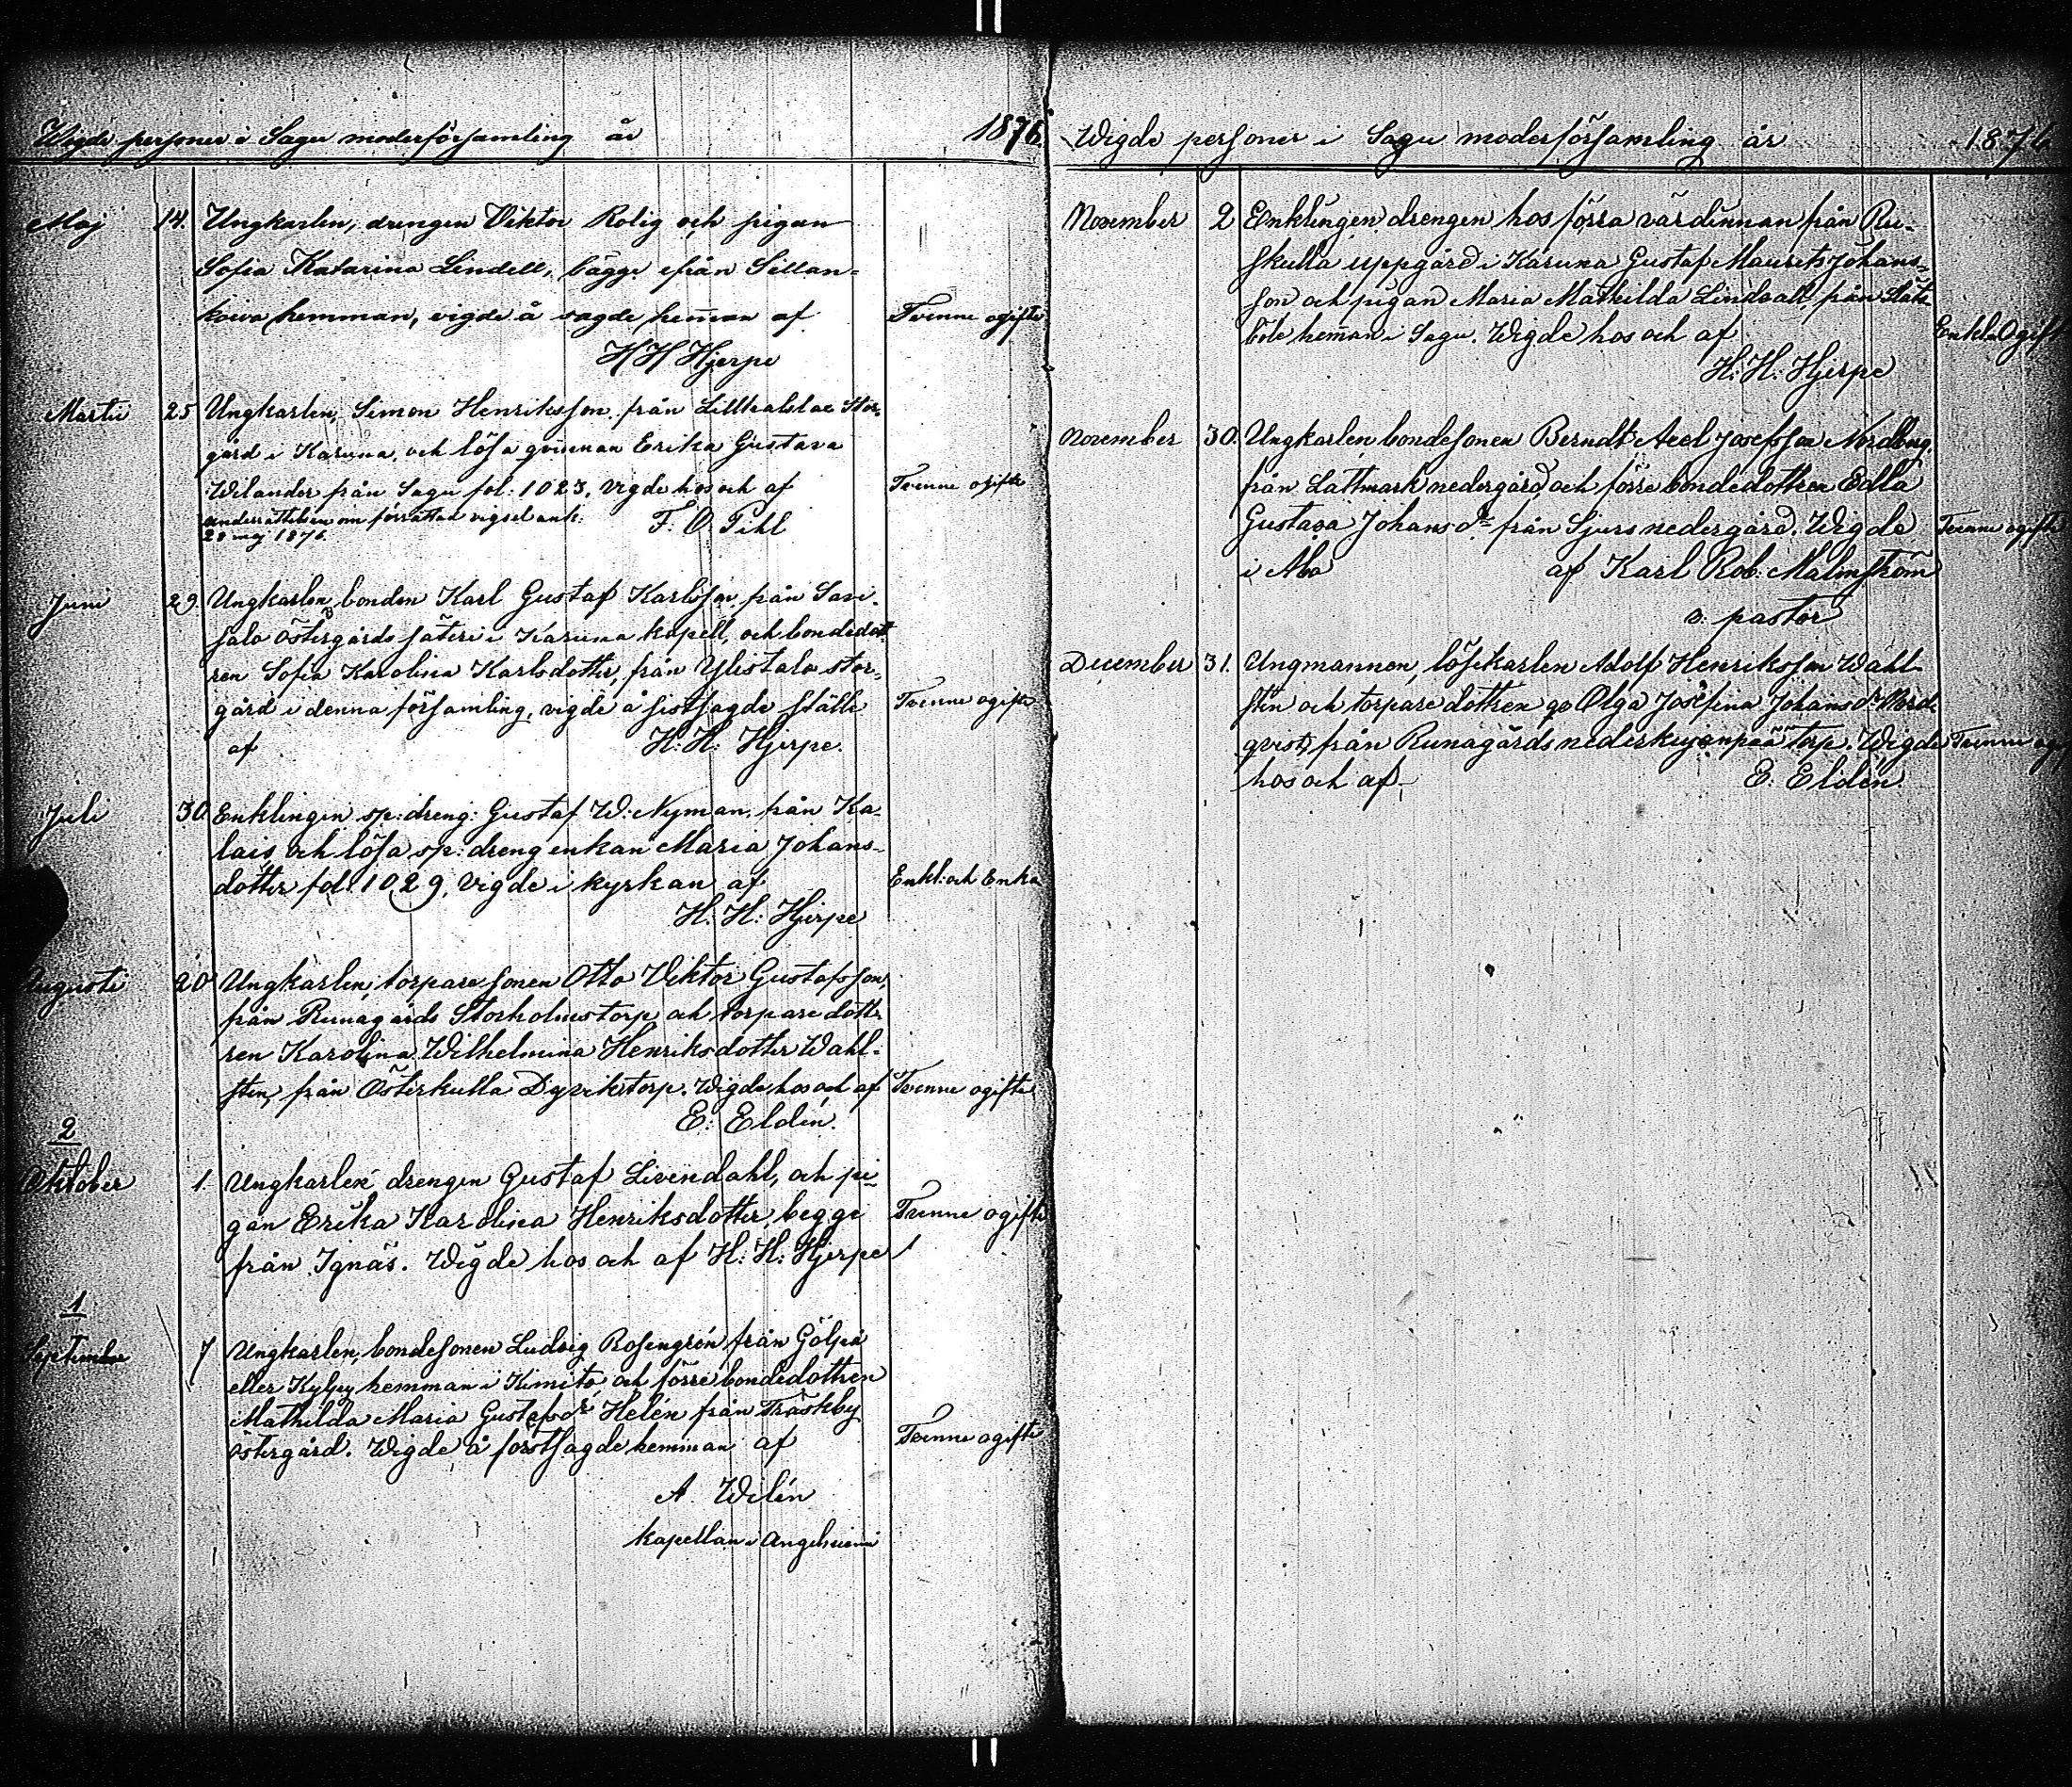 Wigde personer i Sagu moderförsamling år 1876.
Maj 14. Ungkarlen, drengen Viktor Rolig och pigan
Sofia Katarina Lindell, bägge från Sillan-
koiva hemman, vigde å sagde hem̅an af Tvenne ogifte
H H Hjerpe
Martii 25 Ungkarlen, Simon Henriksson, från Stor-
gård i Karuna, och lösa qvinnan Erika Gustava
Wilander från Sagu fol: 1023, vigde hos och af Tvenne ogifte
underrättelsen om förrättad vigsel ank: F. O. Pihl
28 maj 1876.
Juni 29. Ungkarlen, bonden Karl Gustaf Karlsson, från Savi-
salo Östergårds säteri i Karuna kapell, och bondedott
ren Sofia Karolina Karlsdotter, från Ylistalo stor-
gård i denna församling, vigde å sistsagde ställe Tvenne ogifte
af H. H. Hjerpe.
Juli 30 Enklingen sp: dreng: Gustaf W: Nyman, från Ka-
lais och lösa sp: dreng enkan Maria Johans-
dotter fol: 1029, vigde i kyrkan af Enkl: och Enka
H. H: Hjerpe
Augusti 20 Ungkarlen, torparesonen Otto Viktor Gustafsson,
från Runagårds Storholmstorp och torparedott-
ren Karolina Wilhelmina Henriksdotter Wahl-
sten, från Österkulla Dyvikstorp. Wigde hos och af Tvenne ogifte
E: Eldén.
2
Oktober 1. Ungkarlen drengen Gustaf Livendahl, och pi-
gan Erika Karolina Henriksdotter, begge Tvenne ogifte
från Ignäs. Wigde hos och af H: H: Hjerpe
1
September 7 Ungkarlen, bondesonen Ludvig Rosengrén från Gölpä
eller Kylpy hemman i Kimito och förre bondedottren
Mathilda Maria Gustafsdr Helén från Träskby
Östergård. Wigde å förstsagde hemman af Tvenne ogifte
A. Wilén
kapellan i Angelniemi
Wigde personer i Sagu moderförsamling år 1876
November 2 Enklingen, drengen hos förra värdinnan från Ru-
skulla uppgård i Karuna Gustaf Maurits Johans-
son och pigan Maria Mathilda Lindvall, från
böle hem̅an i Sagu. Wigde hos och af Enkl. Ogift
H: H: Hjerpe
November 30. Ungkarlen bondesonen Berndt Axel Josefsson Nordberg,
från Lattmark nedergård, och förre bondedottren Edla
Gustava Johansdr från Sjurs nedergård. Wigde Tvenne ogifte
i Åbo af Karl Rob: Malmström
v. pastor
December 31. Ungmannen, lösekarlen Adolf Henriksson Wahl-
stén och torparedottren Olga Josefina Johansdr Nord-
qvist, från Runagårds nederkujanpää torp. Wigde Tvenne ogi
hos och af E. Eldén.